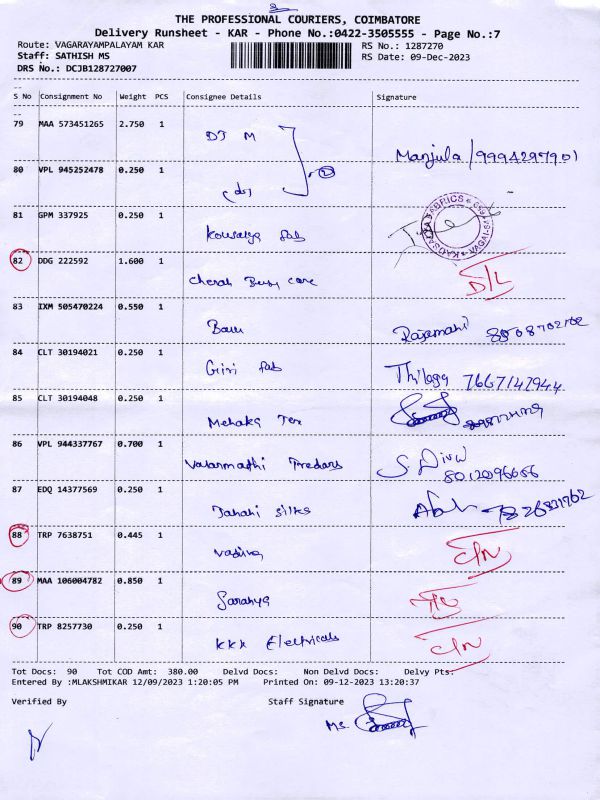 THE PROFESSIONAL COURIERS, COIMBATORE
Delivery Runsheet - KAR - Phone No.:0422-3505555 - Page No.:7
Route: VAGARAYAMPALAYAM KAR RS No.: 1287270
Staff: SATHISH MS RS Date: 09-Dec-2023
DRS No.: DCJB128727007
S No Consignment No Weight PCS Consignee Details Signature
79 MAA 573451265 2.750 1 DJ M
Manjula / 9994297901
80 VPL 945252478 0.250 1
81 GPM 337925 0.250 1
KAUSALYA FABRICS
82 DDG 222592 1.600 1 D/L
83 IXM 505470224 0.550 1
84 CLT 30194021 0.250 1 Giri fab Thilaga 7667142944
85 CLT 30194048 0.250 1 Mehaka Tex
86 VPL 944337767 0.700 1 S. Divu
87 EDQ 14377569 0.250 1 silks
88 TRP 7638751 0.445 1
89 MAA 106004782 0.850 1 Saranya
90 TRP 8257730 0.250 1 KKK Electricals
Tot Docs: 90 Tot COD Amt: 380.00 Delvd Docs: Non Delvd Docs: Delvy Pts:
Entered By :MLAKSHMIKAR 12/09/2023 1:20:05 PM Printed On: 09-12-2023 13:20:37
Verified By Staff Signature
Ms.